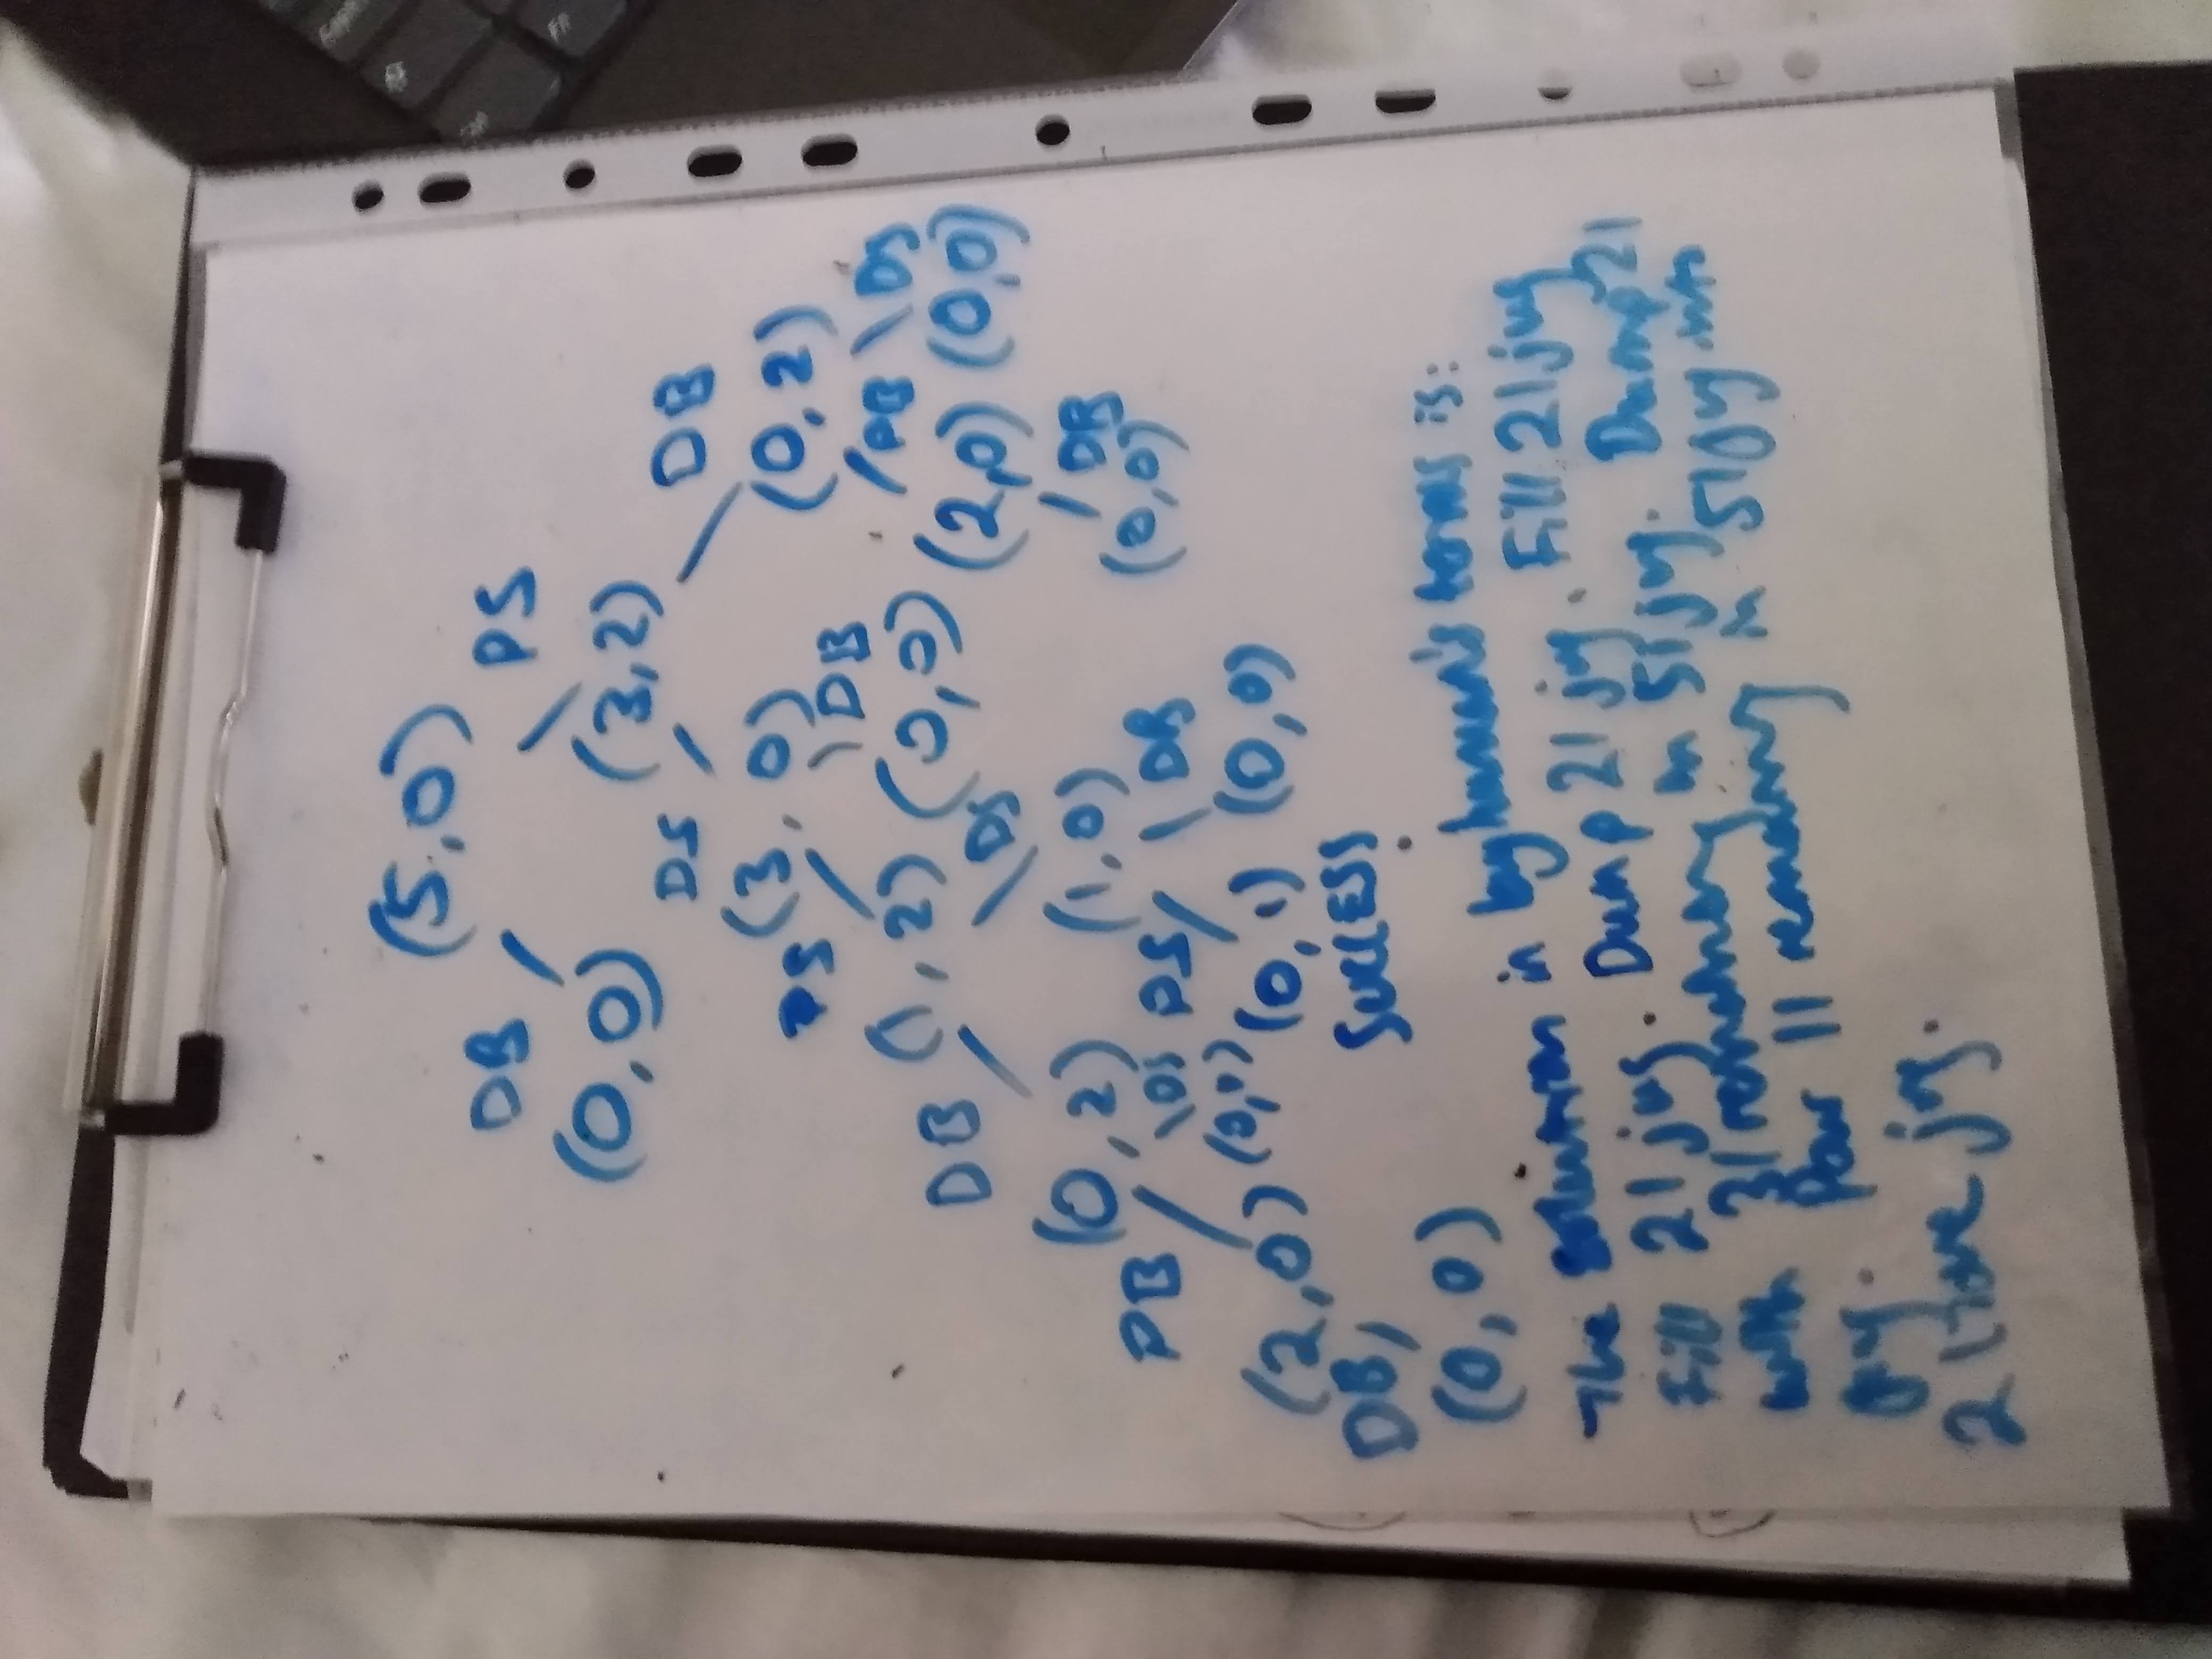 (5,0)
DB PS
(0,0) (3,2)
DS DB
(3,0) (0,2)
PS DB PB DS
(1,2) (0,0) (2,0) (0,0)
DB DS DB
(0,2) (1,0) (0,0)
PB DS PS DB
(2,0) (0,0) (0,1) (0,0)
DB SUCCESS
(0,0)
The in by human's terms is:
Fill 2l jug. Dump 2l jug. Fill 2l jug
with 3l remaining in 5l jug. Dump 2l
jug. Pour 1l remaining in 5l jug in
2 litre jug.